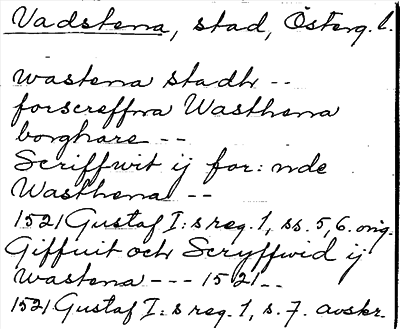 Vadstena, stad, Österg. l.
wastena stadh --
forscreffna Wasthena
borghare --
Scriffwit ij for: nde
Wasthena --
1521 Gustaf I:s reg. 1, ss. 5, 6. orig.
Giffuit och Scryffwid ij
Wastena --- 1521--
1521 Gustaf I:s reg. 1, s. 7. avskr.